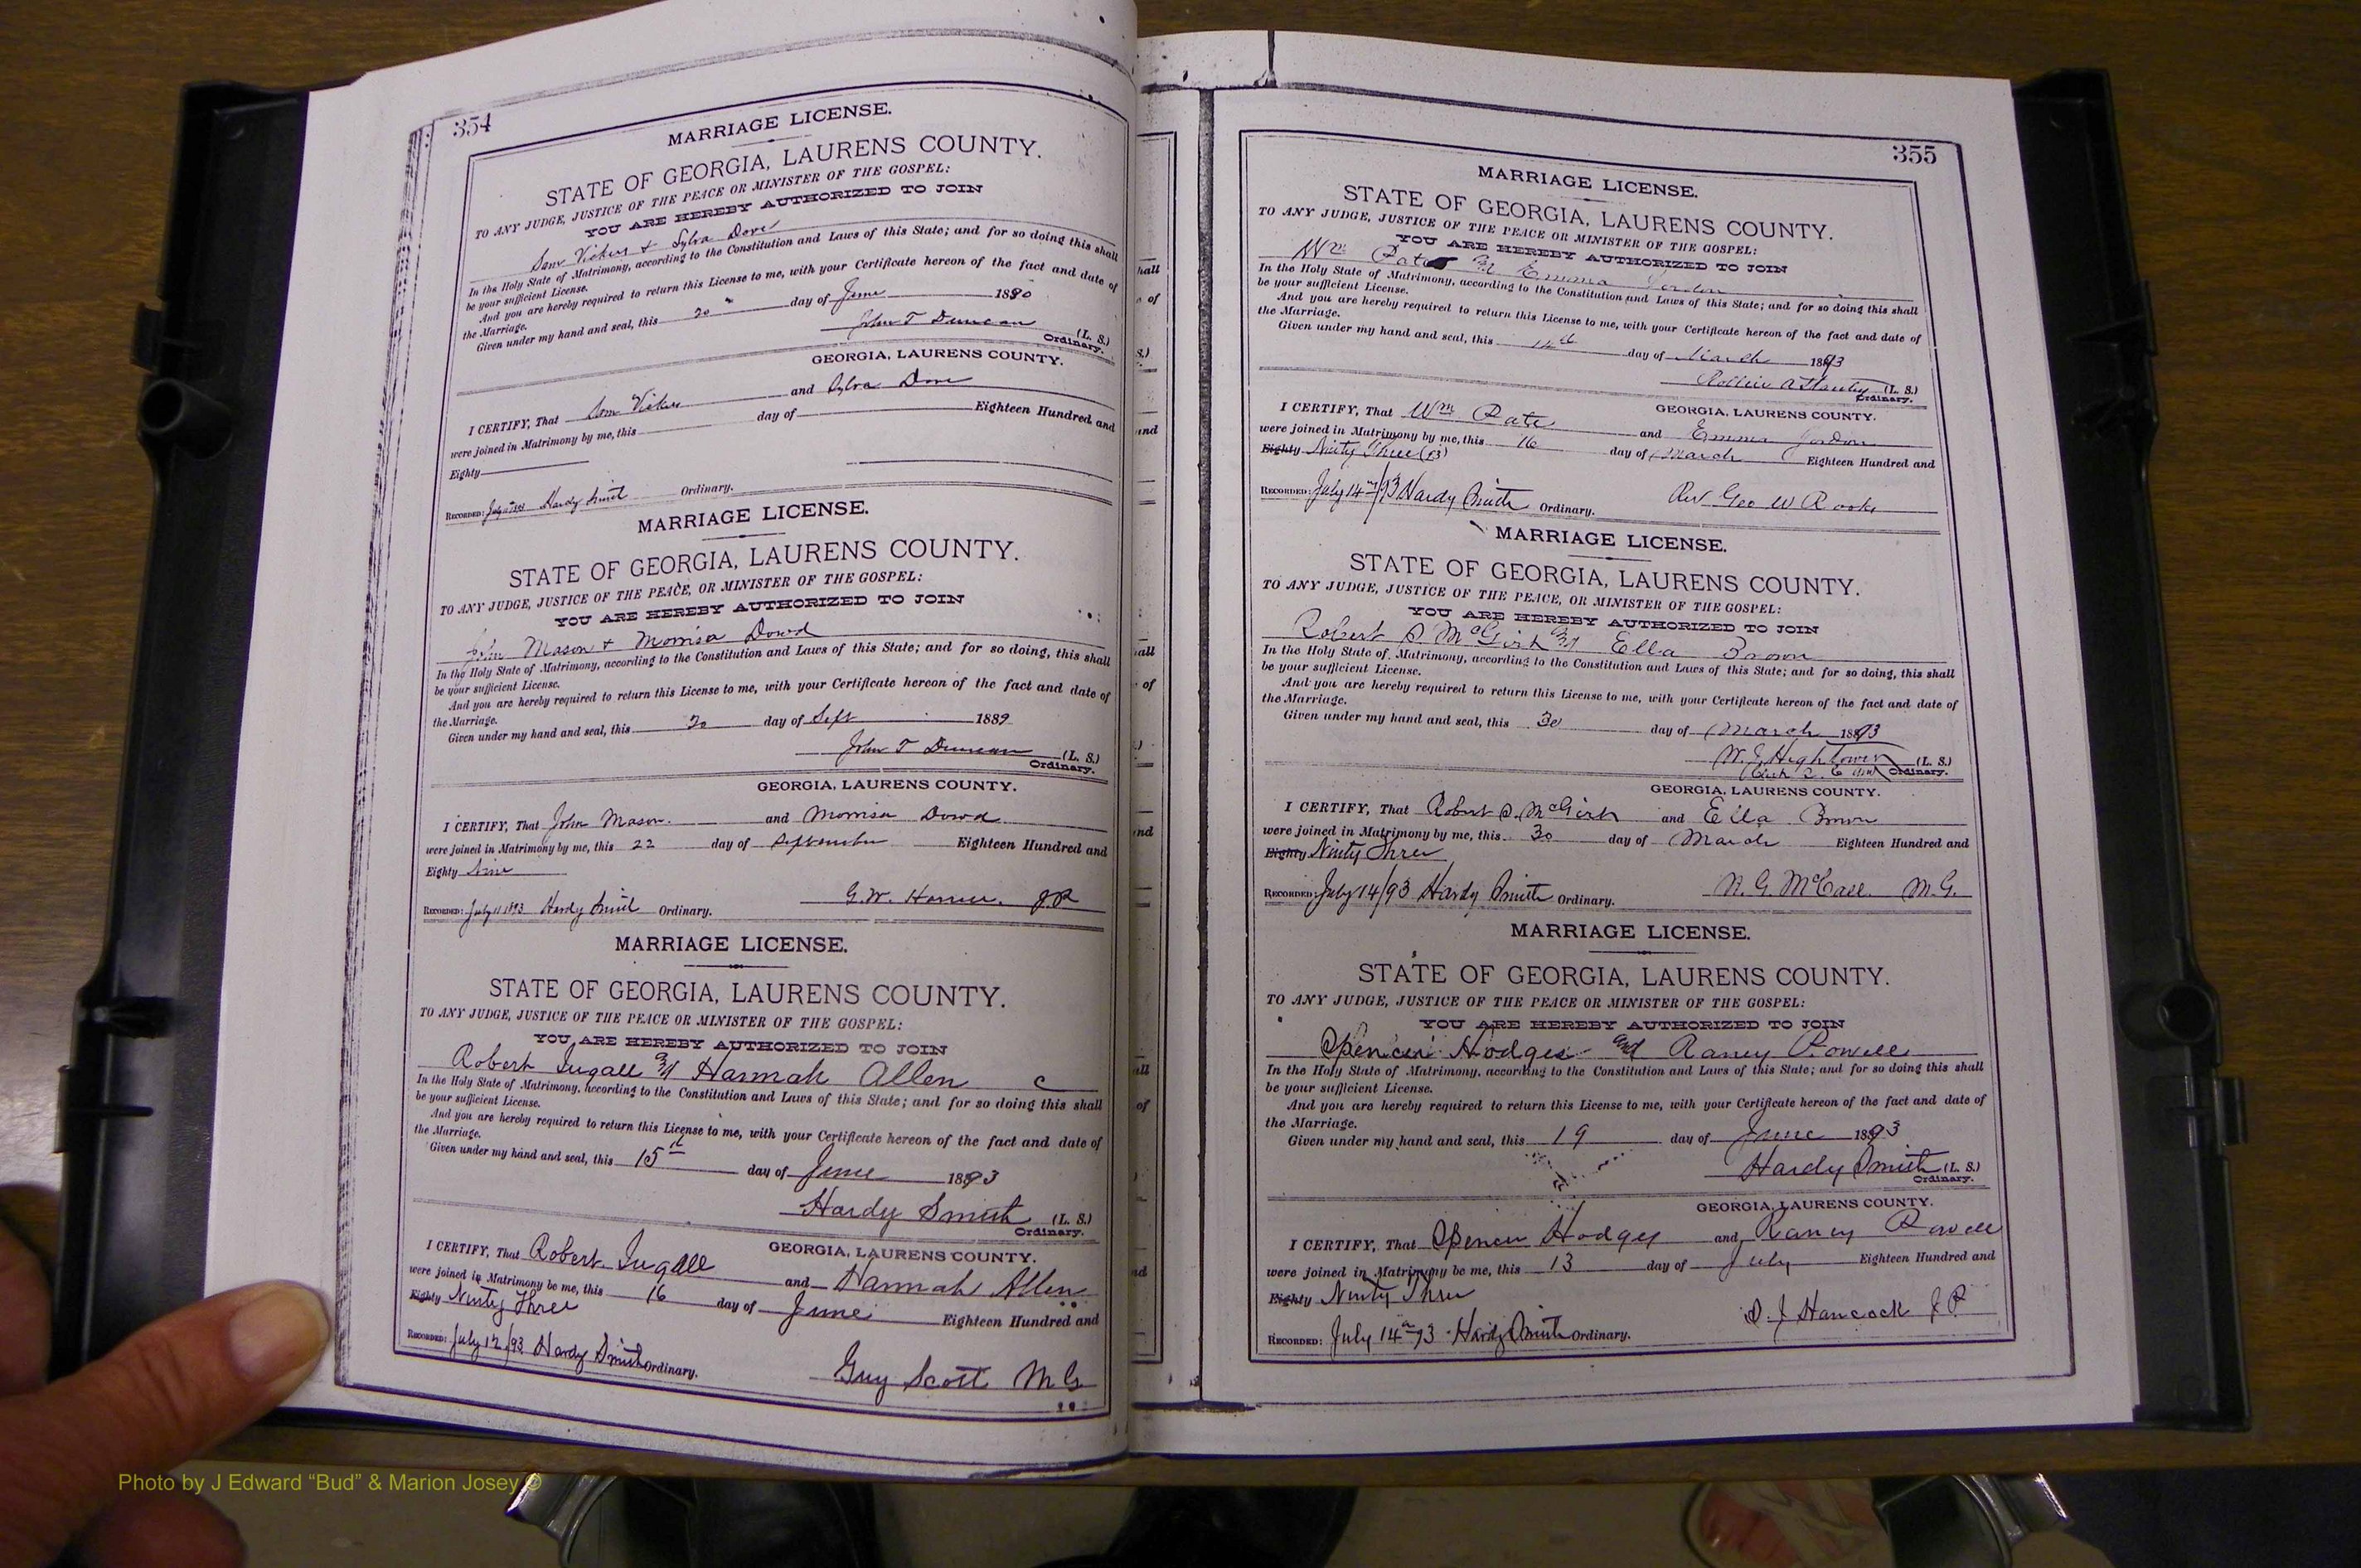 354
MARRIAGE LICENSE.
STATE OF GEORGIA, LAURENS COUNTY.
TO ANY JUDGE, JUSTICE OF THE PEACE OR MINISTER OF THE GOSPEL:
YOU ARE HEREBY AUTHORIZED TO JOIN
Sam Vickers + Sylva Dove
In the Holy State of Matrimony, according to the Constitution and Laws of this State; and for so doing this shall
be your sufficient License.
And you are hereby required to return this License to me, with your Certificate hereon of the fact and date of
the Marriage.
Given under my hand and seal, this 20 day of June 1880
John T Duncan (L. S.)
Ordinary.
GEORGIA, LAURENS COUNTY.
I CERTIFY, That Sam Vickers and Sylva Dove
were joined in Matrimony by me, this day of Eighteen Hundred and
Eighty
RECORDED: July 1893 Hardy Smith Ordinary.
MARRIAGE LICENSE.
STATE OF GEORGIA, LAURENS COUNTY.
TO ANY JUDGE, JUSTICE OF THE PEACE, OR MINISTER OF THE GOSPEL:
YOU ARE HEREBY AUTHORIZED TO JOIN
John Mason + Morrisa Dowd
In the Holy State of Matrimony, according to the Constitution and Laws of this State; and for so doing, this shall
be your sufficient License.
And you are hereby required to return this License to me, with your Certificate hereon of the fact and date of
the Marriage.
Given under my hand and seal, this 20 day of Sept 1889
John T Duncan (L. S.)
Ordinary.
GEORGIA, LAURENS COUNTY.
I CERTIFY, That John Mason. and Morrisa Dowd
were joined in Matrimony by me, this 22 day of September Eighteen Hundred and
Eighty Nine
G. W. J.P
RECORDED: July 11 1893 Hardy Smith Ordinary.
MARRIAGE LICENSE.
STATE OF GEORGIA, LAURENS COUNTY.
TO ANY JUDGE, JUSTICE OF THE PEACE OR MINISTER OF THE GOSPEL:
YOU ARE HEREBY AUTHORIZED TO JOIN
Robert and Hannah Allen c
In the Holy State of Matrimony, according to the Constitution and Laws of this State; and for so doing this shall
be your sufficient License.
And you are hereby required to return this License to me, with your Certificate hereon of the fact and date of
the Marriage.
Given under my hand and seal, this 15th day of June 1893
Hardy Smith (L. S.)
Ordinary.
GEORGIA, LAURENS COUNTY.
I CERTIFY, That Robert and Hannah Allen
were joined in Matrimony be me, this 16 day of June Eighteen Hundred and
Eighty Ninty Three
RECORDED: July 12/93 Hardy Smith Ordinary.
Guy Scott M G
355
MARRIAGE LICENSE.
STATE OF GEORGIA, LAURENS COUNTY.
TO ANY JUDGE, JUSTICE OF THE PEACE OR MINISTER OF THE GOSPEL:
YOU ARE HEREBY AUTHORIZED TO JOIN
Wm Pate and Emma Jordon
In the Holy State of Matrimony, according to the Constitution and Laws of this State; and for so doing this shall
be your sufficient License.
And you are hereby required to return this License to me, with your Certificate hereon of the fact and date of
the Marriage.
Given under my hand and seal, this day of March 1893
Rollin A Stanley (L. S.)
Ordinary.
GEORGIA, LAURENS COUNTY.
I CERTIFY, That Wm Pate and Emma Jordon
were joined in Matrimony by me, this 16 day of March Eighteen Hundred and
Eighty Ninty Three (93)
Rev Geo W Rooks
RECORDED: July 14th/93 Hardy Smith Ordinary.
MARRIAGE LICENSE.
STATE OF GEORGIA, LAURENS COUNTY.
TO ANY JUDGE, JUSTICE OF THE PEACE, OR MINISTER OF THE GOSPEL:
YOU ARE HEREBY AUTHORIZED TO JOIN
Robert S McGirk and Ella Brown
In the Holy State of Matrimony, according to the Constitution and Laws of this State; and for so doing, this shall
be your sufficient License.
And you are hereby required to return this License to me, with your Certificate hereon of the fact and date of
the Marriage.
Given under my hand and seal, this 30 day of March 1893
W. E. Hightower (L. S.)
Ordinary.
GEORGIA, LAURENS COUNTY.
I CERTIFY, That Robert S. McGirk and Ella Brown
were joined in Matrimony by me, this 30 day of March Eighteen Hundred and
Eighty Ninty Three
RECORDED: July 14/93 Hardy Smith Ordinary.
N. G. McCall M. G.
MARRIAGE LICENSE.
STATE OF GEORGIA, LAURENS COUNTY.
TO ANY JUDGE, JUSTICE OF THE PEACE OR MINISTER OF THE GOSPEL:
YOU ARE HEREBY AUTHORIZED TO JOIN
Spencer Hodges and Raney Powell
In the Holy State of Matrimony, according to the Constitution and Laws of this State; and for so doing this shall
be your sufficient License.
And you are hereby required to return this License to me, with your Certificate hereon of the fact and date of
the Marriage.
Given under my hand and seal, this 19 day of June 1893
Hardy Smith (L. S.)
Ordinary.
GEORGIA, LAURENS COUNTY.
I CERTIFY, That Spencer Hodges and Raney Powell
were joined in Matrimony be me, this 13 day of July Eighteen Hundred and
Eighty Ninty Three
D. J Hancock J P
RECORDED: July 14th 93 Hardy Smith Ordinary.
Photo by J Edward “Bud” & Marion Josey ©